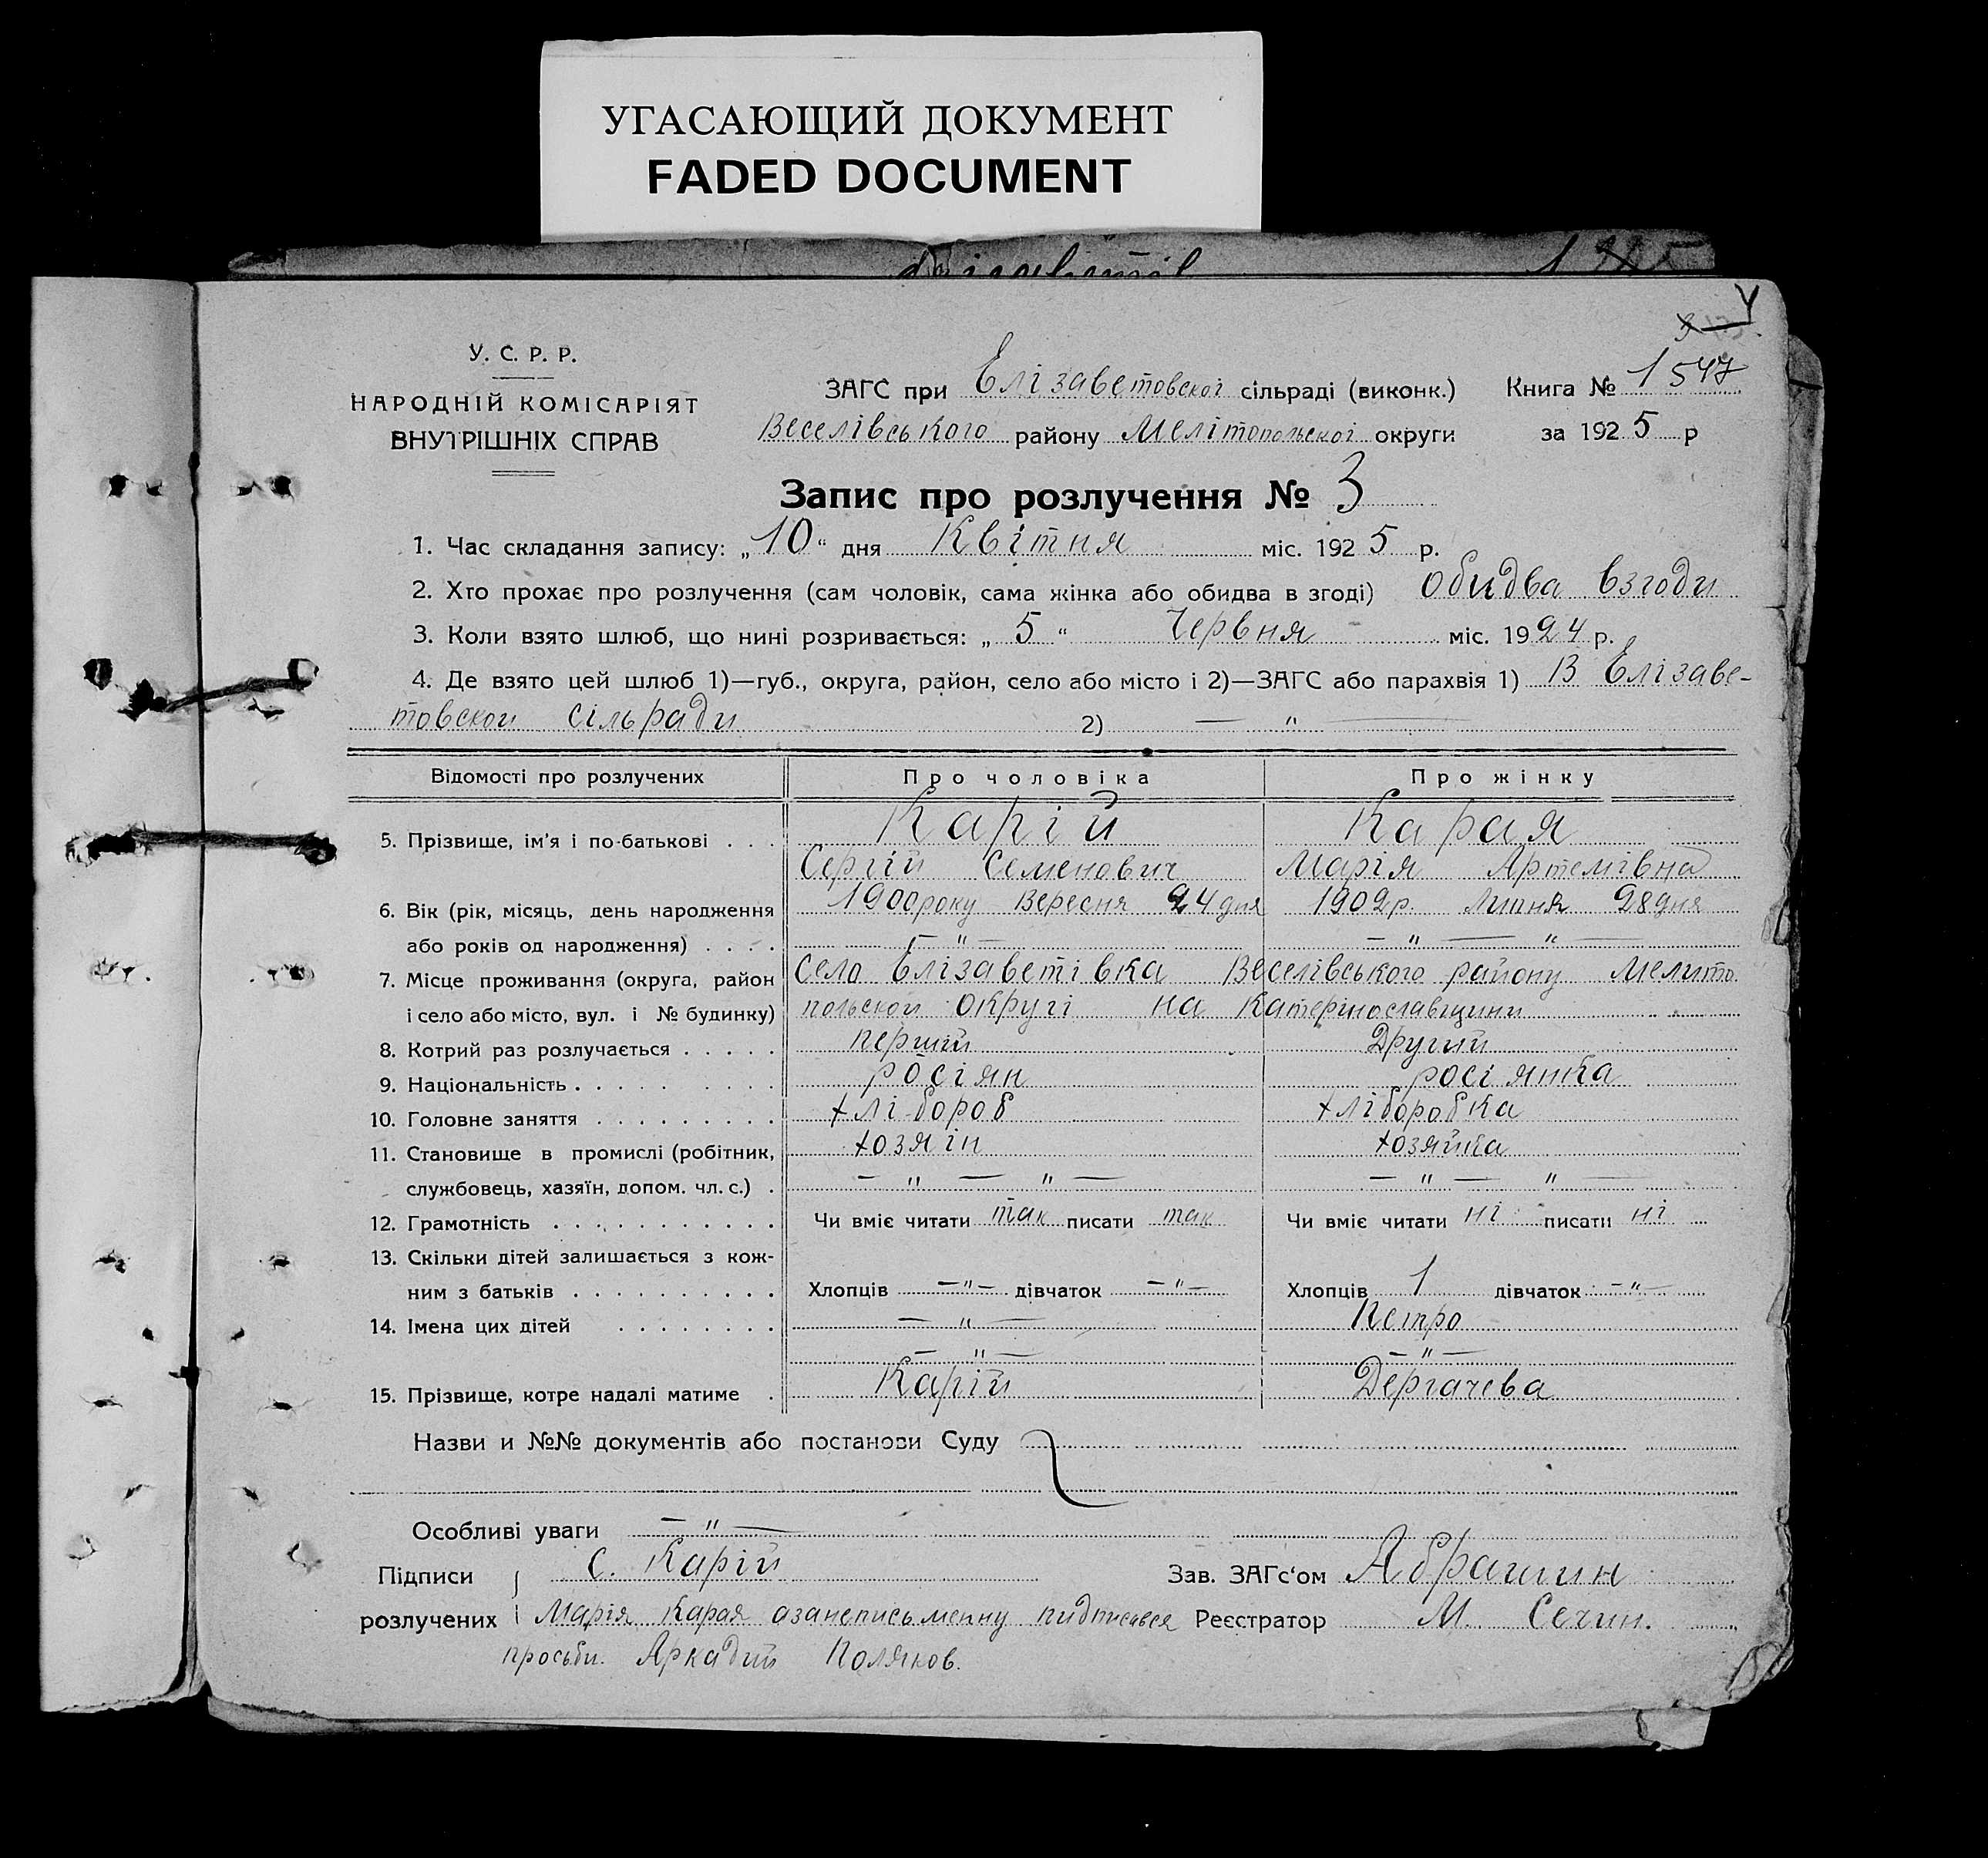 УГАСАЮЩИЙ ДОКУМЕНТ
FADED DOCUMENT
У. С. Р. Р.
НАРОДНІЙ КОМІСАРІЯТ
ВНУТРІШНІХ СПРАВ
ЗАГС при Елізаветовскоі сільраді (виконк.) Книга № 1547
Веселівського району Мелітопольскоі округи за 1925 р
Запис про розлучення № 3
1. Час складання запису: „10“ дня Квітня міс. 1925 р.
2. Хто прохає про розлучення (сам чоловік, сама жінка або обидва в згоді) обидва взгоди
3. Коли взято шлюб, що нині розривається: „5“ Червня міс. 1924 р.
4. Де взято цей шлюб 1)—губ., округа, район, село або місто і 2)—ЗАГС або парахвія 1) В Елізаве-
товскои сільради 2) — " —
Відомості про розлучених Про чоловіка Про жінку
5. Прізвище, ім'я і по-батькові . . . Карій Карая
Сергій Семенович Марія Артемівна
6. Вік (рік, місяць, день народження 1900 року Вересня 24 дня 1902 р. Липня 28 дня
або років од народження) . . . . — " — — " — " —
7. Місце проживання (округа, район Село Елізаветівка Веселівського району Мелито
і село або місто, вул. і № будинку) польскои округі на Катерінославщини
8. Котрий раз розлучається . . . . . перший Другий
9. Національність . . . . росіян росіянка
10. Головне заняття . . . . . . . . . хлібороб хліборобка
11. Становище в промислі (робітник, хозяін хозяйка
службовець, хазяїн, допом. чл. с.) . — " — " — — " — " —
12. Грамотність . . . . . . . . . . . Чи вміє читати так писати так Чи вміє читати ні писати ні
13. Скільки дітей залишається з кож-
ним з батьків . . . . . . . . . . Хлопців —"— дівчаток —"— Хлопців 1 дівчаток —"—
14. Імена цих дітей . . . . . . . . — " — Петро
— " — — " —
15. Прізвище, котре надалі матиме . Карій Дергачева
Назви и №№ документів або постанови Суду
Особливі уваги — " —
Підписи С. Карій Зав. ЗАГс‘ом Абрашин
розлучених Марія Карая азанеписьменну пидписався Реєстратор М. Сечин.
просьби. Аркадий Поляков.